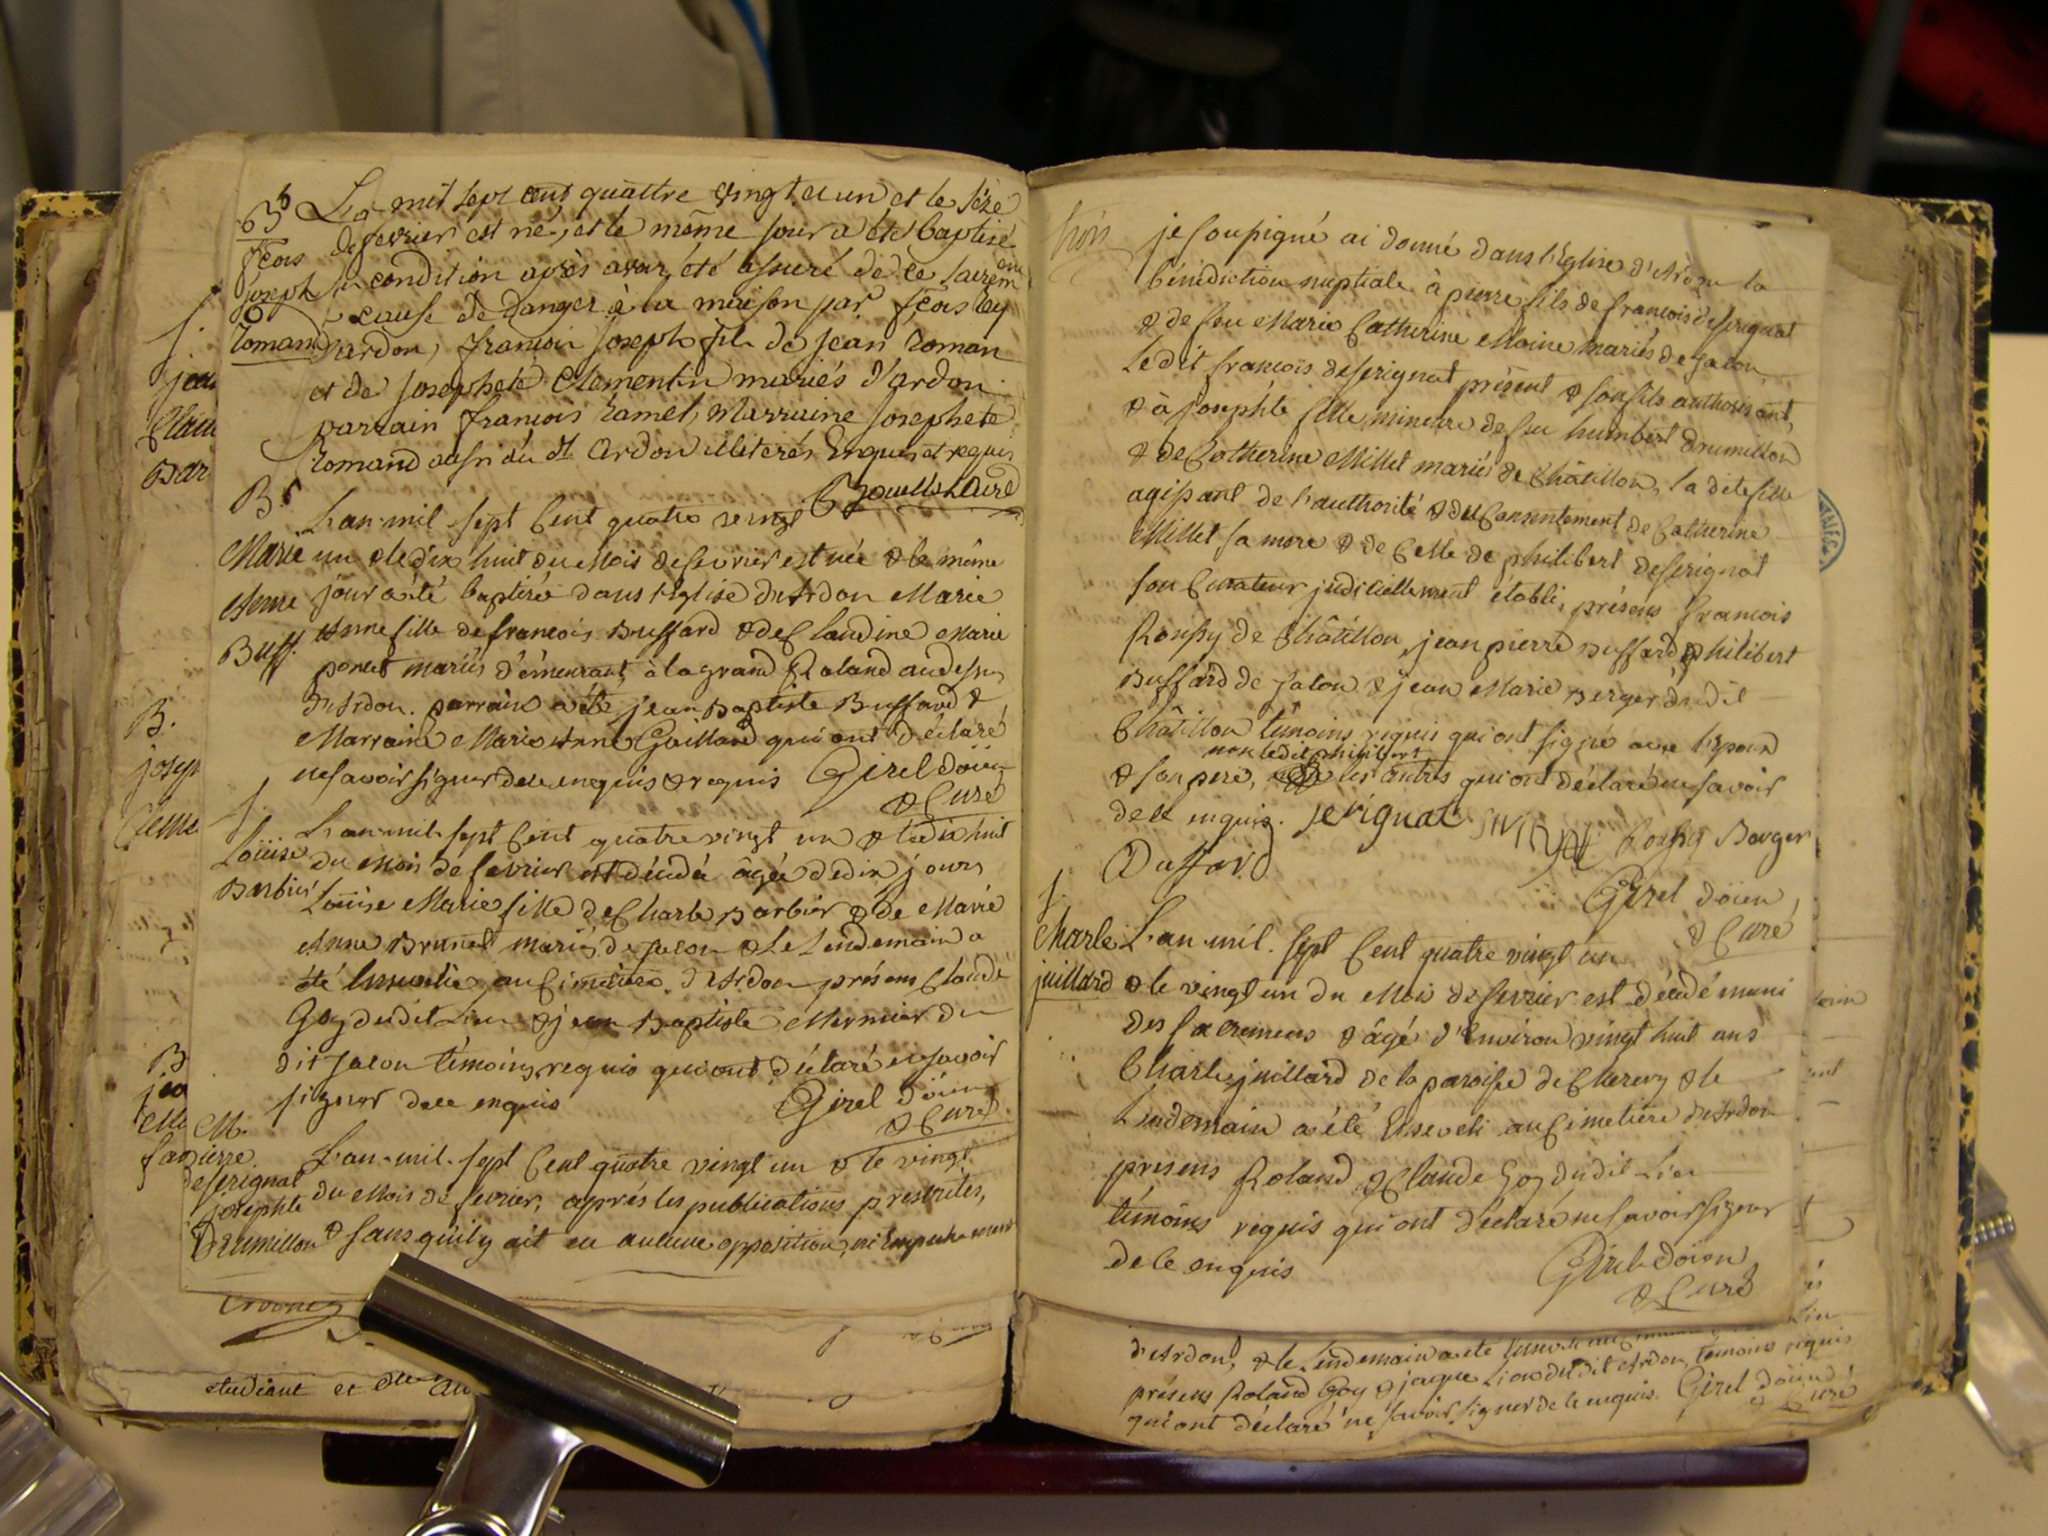 L'an mil sept cent quattre vingt et un et le séze
de fevrier est né, et le même jour a été baptisé
condition après avoir été assuré de le faire en
cause de danger à la maison par fçois
d'ardon, francois joseph fils de jean Roman
et de josephete Clementin mariés d'ardon
parrain francois Ramel, Marraine josephete
Romand aussi du dt Ardon illiterés enquis et requis
Curé
fçois
joseph
Romand
B.
Marie
Anne
Buff.
L'an mil sept Cent quatre vingt
un & le dix huit du Mois de fevrier est née & le même
jour a été baptisée dans l'Eglise d'Ardon Marie
Anne fille de francois Buffard & de Claudine Marie
ponet mariés demeurant à la grand Roland audessus
d'Ardon. parrain a été jean Baptiste Buffard &
Marraine Marie Anne Gaillard qui ont déclaré
ne savoir signer de ce enquis & requis Girel doïen
& Curé
Loüise
Barbier
L'an mil sept Cent quatre vingt un & le dix huit
du Mois de fevrier est décédée âgée de dix jours
Loüise Marie fille de Charle Barbier & de Marie
Anne Brunet mariés de Jalon & Le Lendemain a
été Ensevelie au Cimetiere d'Ardon présens Claude
Goy dudit Lieu & jean Baptiste Mermier du
dit Jalon témoins requis qui ont déclaré ne savoir
signer de ce enquis Girel doïen
& Curé
M.
pierre
deserignat
josephte
Drumillon
L'an mil sept Cent quatre vingt un & le vingt
du Mois de fevrier, après les publications prescrites,
& sans qu'il y ait eu aucune opposition, ni Empechement
B.
etudiant et
trois
je soussigné ai donné dans l'Eglise d'Ardon la
bénédiction nuptiale à pierre fils de francois deserignat
& de feu Marie Catherine Moine mariés de Jalon
Ledit francois deserignat présent & son fils authorisant,
& à josephte fille mineure de feu humbert Drumillon
& de Catherine Millet mariés de Châtillon, la dite fille
agissant de l'authorité & du Consentement de Catherine
Millet sa mere & de Celle de philibert deserignat
son Curateur judiciellement établi, présens francois
Roussy de Châtillon, jean pierre Buffard philibert
Buffard de Jalon & jean Marie Berger dudit
Châtillon témoins requis qui ont signé avec l'epoux
non ledit philibert
& son pere, les autres qui ont déclaré ne savoir
de ce enquis. serignat Roussy Berger
Buffard
Girel doïen
& Curé
Charle
juillard
L'an mil sept Cent quatre vingt un
& le vingt un du Mois de fevrier est décédé muni
des sacremens & âgé d'Environ vingt huit ans
Charle juillard de la paroisse de Chezery & le
Lendemain a été Enseveli au Cimetiere d'Ardon
présens Roland & Claude Goy dudit Lieu
témoins requis qui ont déclaré ne savoir signer
de ce enquis Girel doïen
& Curé
d'Ardon, & le Lendemain a été
présens Roland Goy & jaque dudit Ardon, témoins requis
qui ont déclaré ne savoir signer de ce enquis. Girel doïen
& Curé